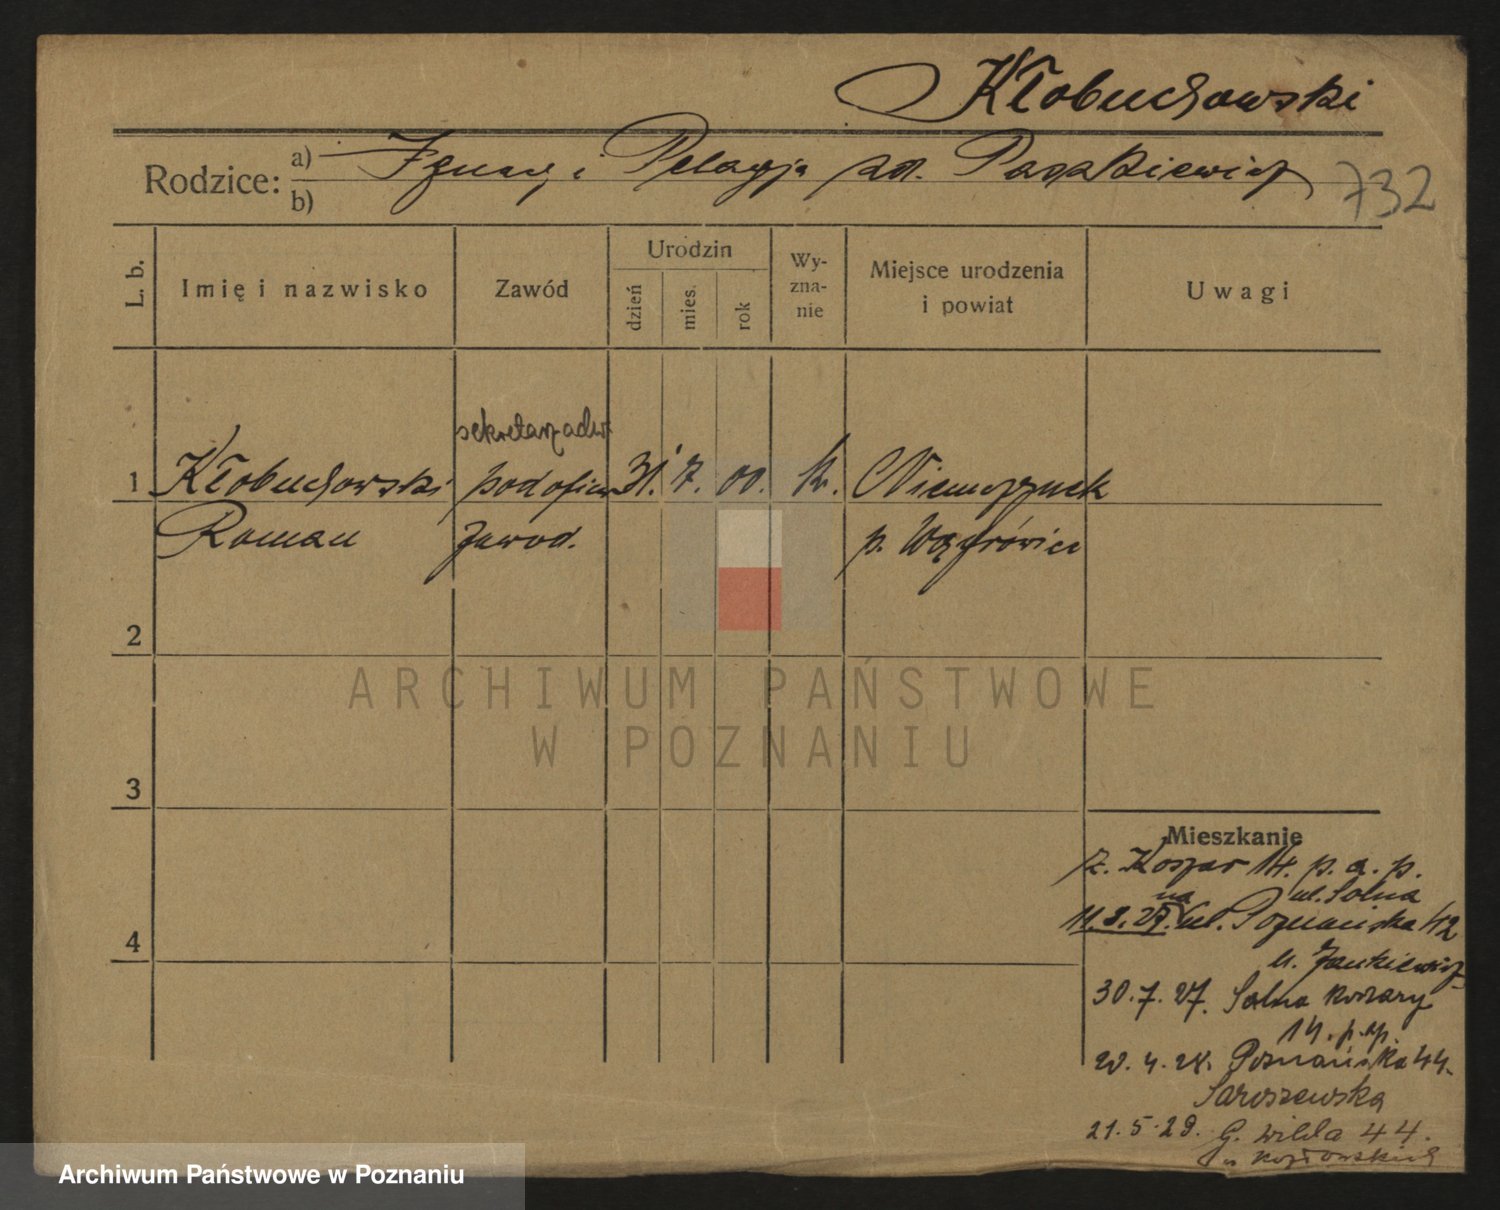 Kłobuchowski
Rodzice: a) Ignacy i Pelagja zd. Paszkiewicz
b)
732
L. b.
Imię i nazwisko
Zawód
Urodzin
dzień
mies.
rok
Wy-
zna-
nie
Miejsce urodzenia
i powiat
Uwagi
sekretarz adw.
1 Kłobuchowski podoficer 31. 7. 00. k. Niemczynek
Roman zawod. p. Wągrówiec
2
3
4
Mieszkanie
z. Koszar 14. p. a. p.
ul. Solna
na
11.3.27. ul. Poznańska 42
u. Jankiewicz
30.7.27. Solna koszary
14. p.ap.
20.4.28. Poznańska 44.
Saroszewska
21.5.29. G. Wilda 44.
u Kozłowskich
ARCHIWUM PAŃSTWOWE
W POZNANIU
Archiwum Państwowe w Poznaniu